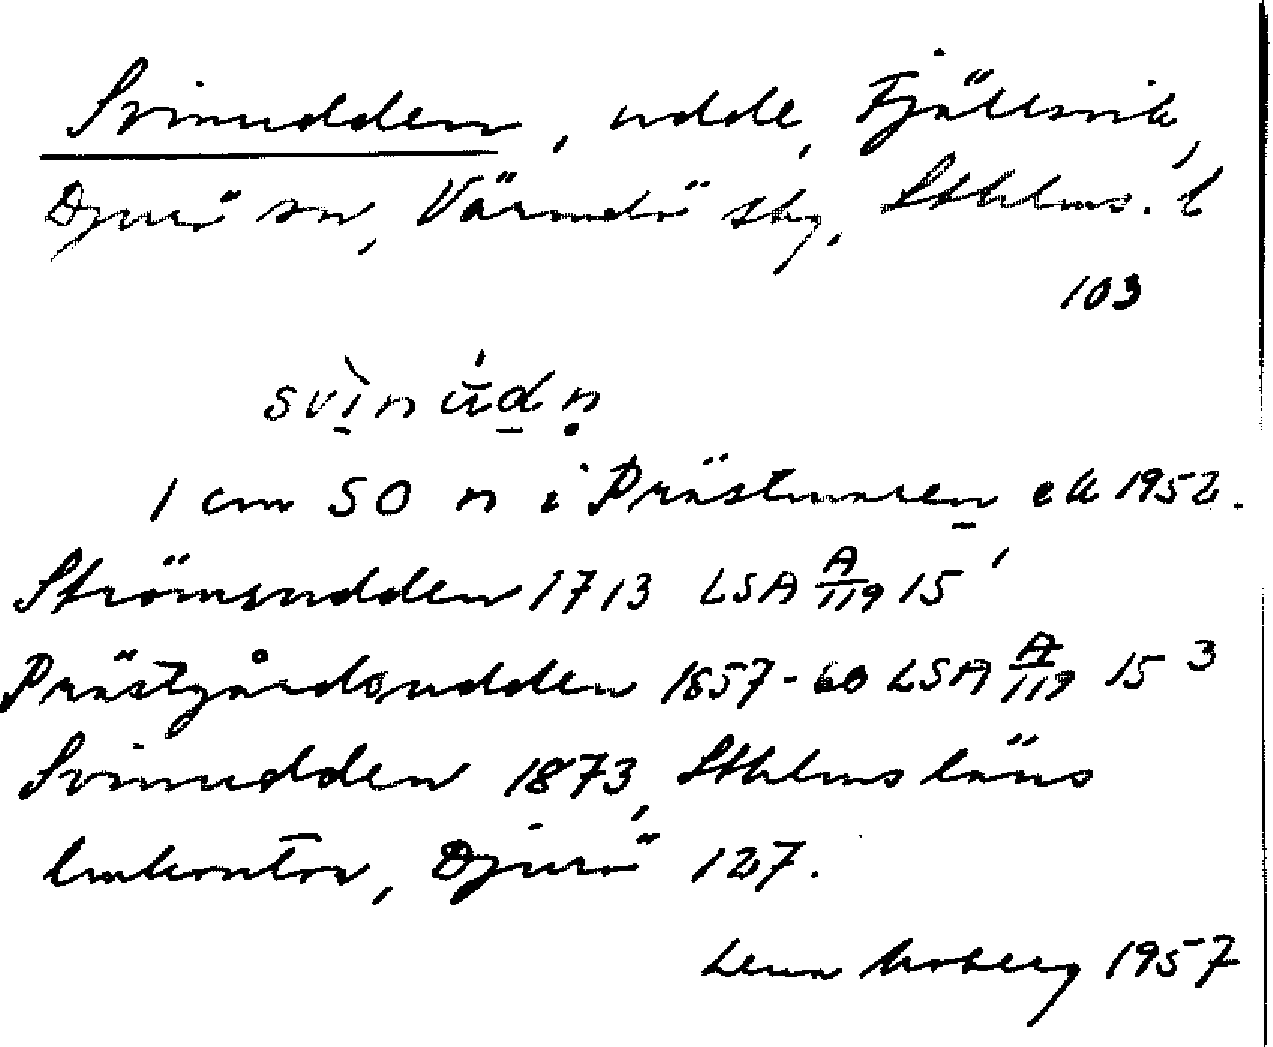 Svinudden, udde, Fjällsvik,
Djurö sn, Värmdö skg, Sthlms. l
103
svìnúdṇ
1 cm SO n i Prästmaren ek 1952.
Strömsudden 1713 LSA A/119 15¹
Prästgårdsudden 1857-60 LSA A/119 15³
Svinudden 1873, Sthlms läns
lmkontor, Djurö 127.
Lena Moberg 1957